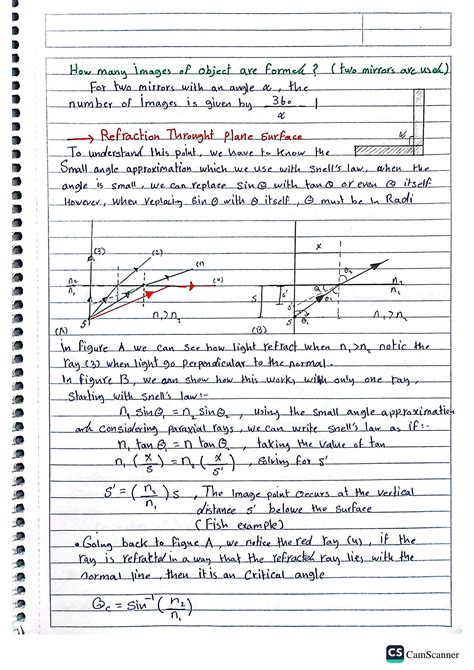 How many images of object are formed? (two mirrors are used)
For two mirrors with an angle α, the
number of images is given by 360/α - 1
α
→ Refraction Throught Plane Surface
To understand this point, we have to know the
Small angle approximation which we use with snell's law, when the
angle is small, we can replace sinθ with tanθ or even θ itself
However, when replacing sinθ with θ itself, θ must be in Radi
(3) (2) (1) (4)
n₂
n₁
S
n₁>n₂
(A)
x
θ₂
n₂
n₁
S S'
θ₂ θ₁
θ₁
S
n₁>n₂
(B)
in figure A we can see how light refract when n₁>n₂ notic the
ray (3) when light go perpendicular to the normal.
In figure B, we can show how this works with only one ray,
starting with Snell's law:-
n₁ sinθ₁ = n₂ sinθ₂, using the small angle approximation
and considering paraxial rays, we can write snell's law as if:-
n₁ tanθ₁ = n tanθ₂, taking the value of tan
n₁ (x/s) = n₂ (x/s'), solving for s'
s' = (n₂/n₁) s, The image point occurs at the vertical
distance s' belowe the surface
(Fish example)
• Going back to figue A, we notice the red ray (4), if the
ray is refratd in a way that the refracted ray lies with the
normal line, then it is an Critical angle
θc = sin⁻¹ (n₂/n₁)
CS CamScanner